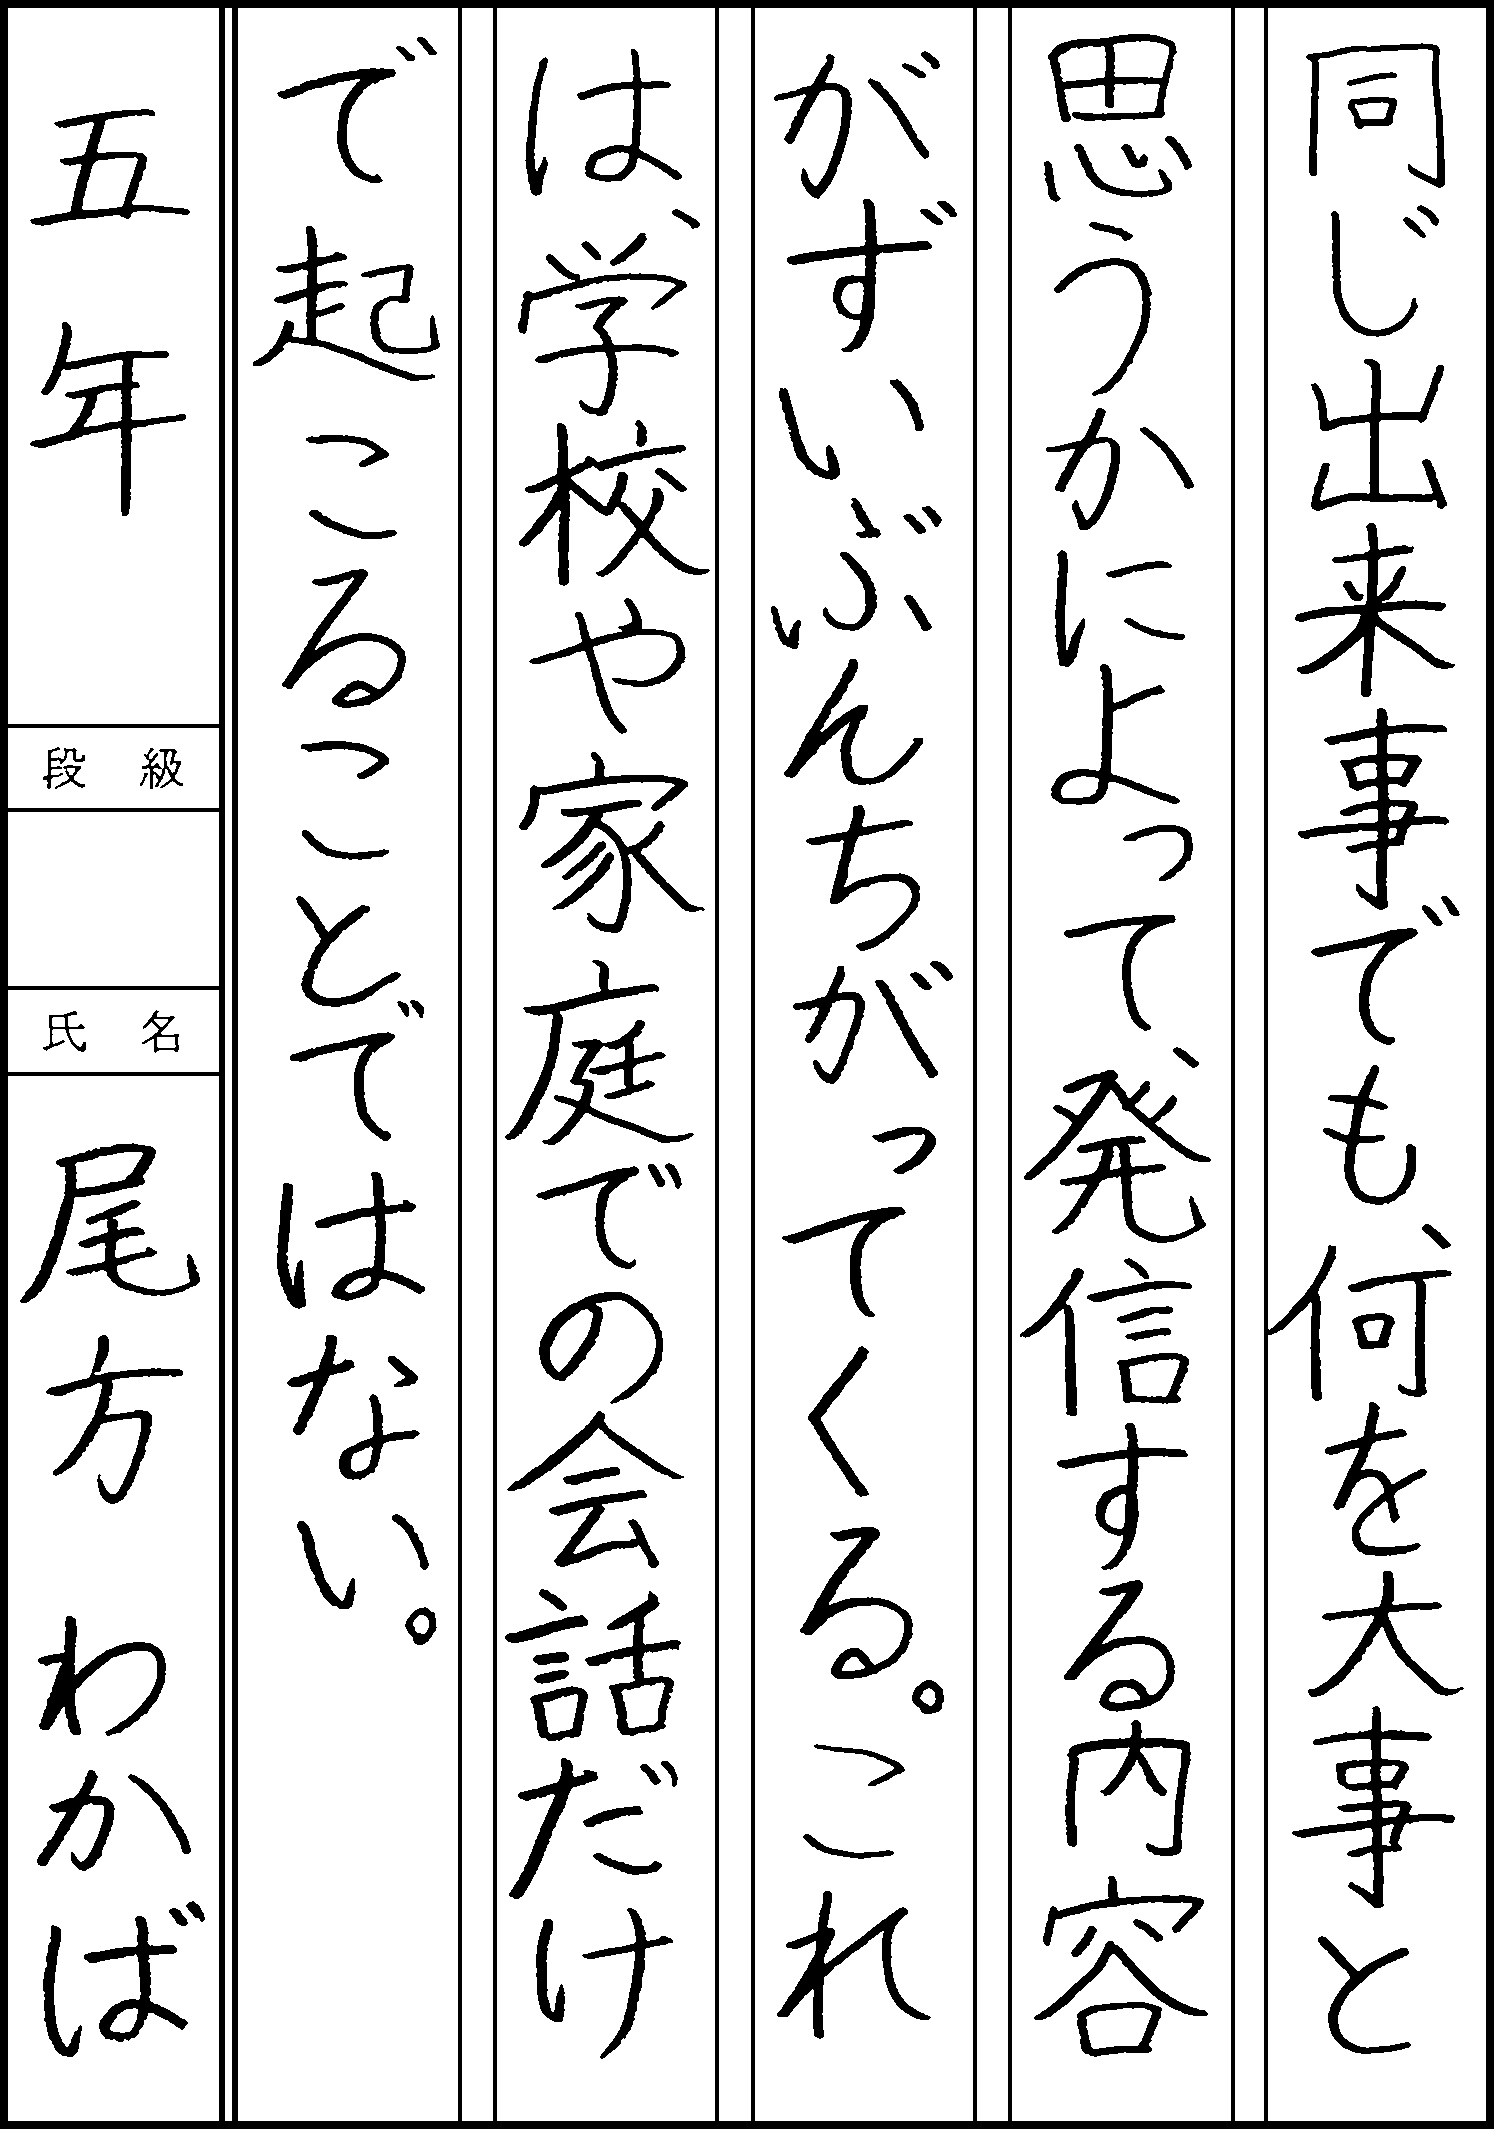 同じ出来事でも、何を大事と
思うかによって、発信する内容
がずいぶんちがってくる。これ
は、学校や家庭での会話だけ
で起こることではない。
五年
段級
氏名
尾方 わかば